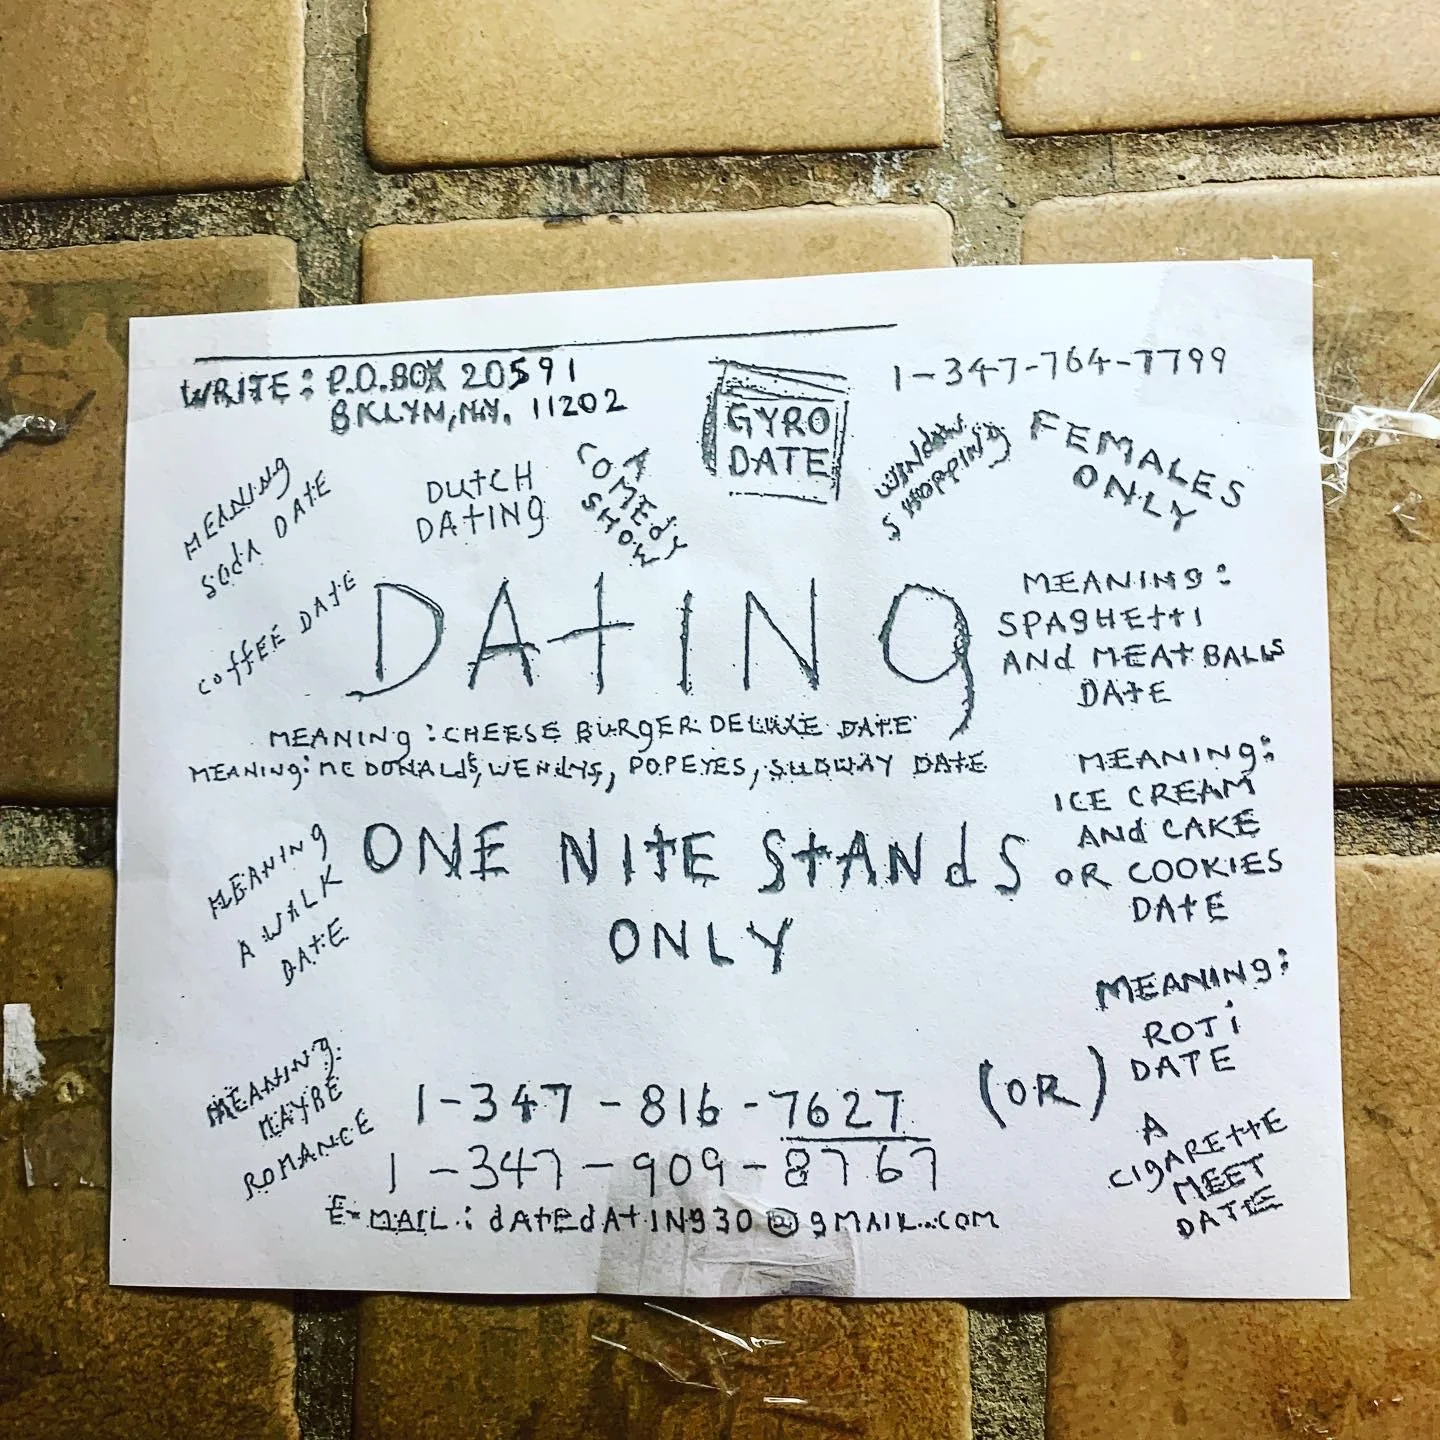 WRITE: P.O.BOX 20591
BKLYN, NY. 11202
GYRO
DATE
1-347-764-7799
MEANING
SODA DATE
DUTCH
DATING
A
COMEDY
SHOW
WINDOW
SHOPPING
FEMALES
ONLY
COFFEE DATE
DATING
MEANING:
SPAGHETTI
AND MEATBALLS
DATE
MEANING: CHEESE BURGER DELUXE DATE
MEANING: MCDONALDS, WENDYS, POPEYES, SUBWAY DATE
MEANING
A WALK
DATE
ONE NITE STANDS
ONLY
MEANING:
ICE CREAM
AND CAKE
OR COOKIES
DATE
MEANING:
ROTI
DATE
MEANING:
MAYBE
ROMANCE
1-347-816-7627 (OR)
1-347-909-8767
E-MAIL: dATEdATING30@gMAIL..COM
A
CIGARETTE
MEET
DATE